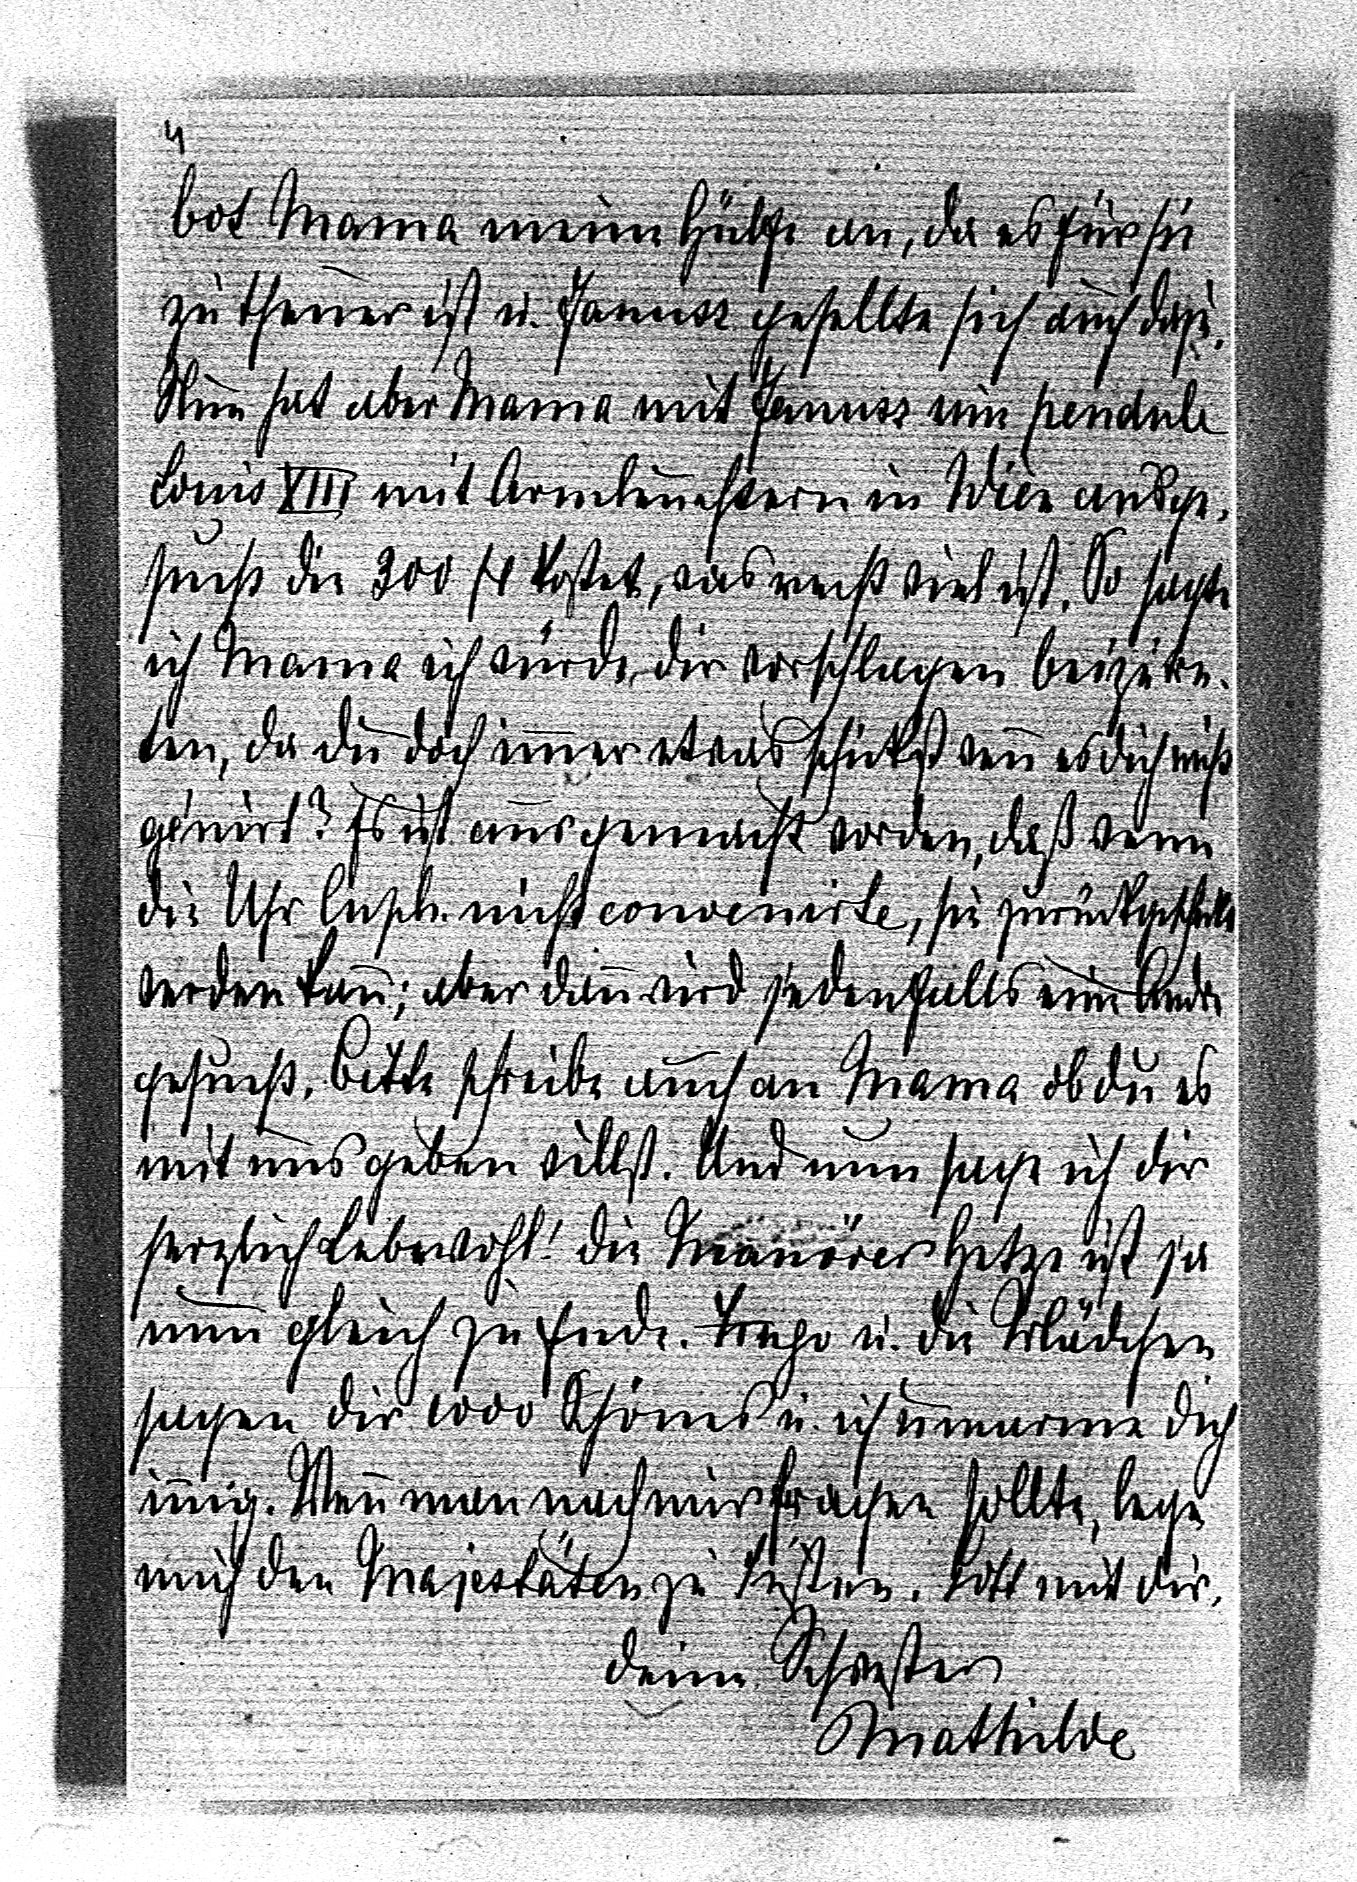 4
bot Mama meine Hülfe an, da es für sie
zu theuer ist u. Janusz gesellte sich auch dazu.
Nun hat aber Mama mit Janusz eine pendule
Louis XIII mit Armleuchtern in Wien ausge-
sucht die 300 fl kostet, was recht viel ist. So sagte
ich Mama ich würde dir vorschlagen beizutre-
ten, da du doch im̅er etwas schickst wen̅ es dich nicht
génirt? Es ist ausgemacht worden, daß wenn
die Uhr nicht convenirte, sie zurückgestellt
werden kan̅; aber dan̅ wird jedenfalls eine Andre
gesucht. Bitte schreibe auch an Mama ob du es
mit uns geben willst. Und nun sage ich dir
herzlich Lebewohl! die Manöver Hetze ist ja
nun gleich zu Ende. Hugo u. die Mädchen
sagen dir 1000 Schönes u. ich umarme dich
in̅ig. Wen̅ man nach mir fragen sollte, lege
mich den Majestäten zu Füßen. Gott mit dir.
deine Schwester
Mathilde